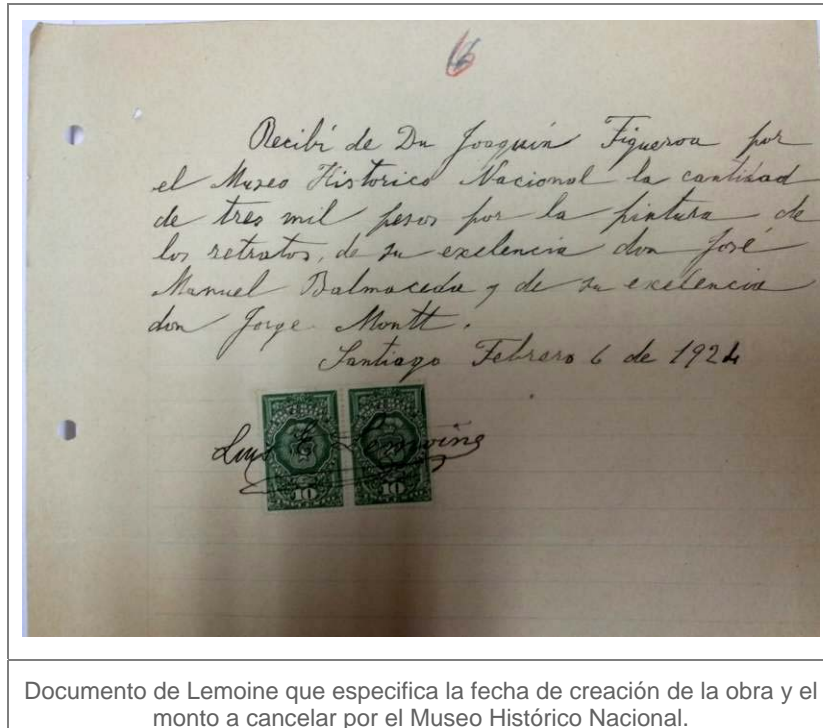 16
Recibí de Dn Joaquín Figueroa por
el Museo Historico Nacional la cantidad
de tres mil pesos por la pintura de
los retratos, de su exelencia don José
Manuel Balmaceda y de su exelencia
don Jorge Montt.
Santiago Febrero 6 de 1924
Luis E. Lemoine
10 10
Documento de Lemoine que especifica la fecha de creación de la obra y el
monto a cancelar por el Museo Histórico Nacional.